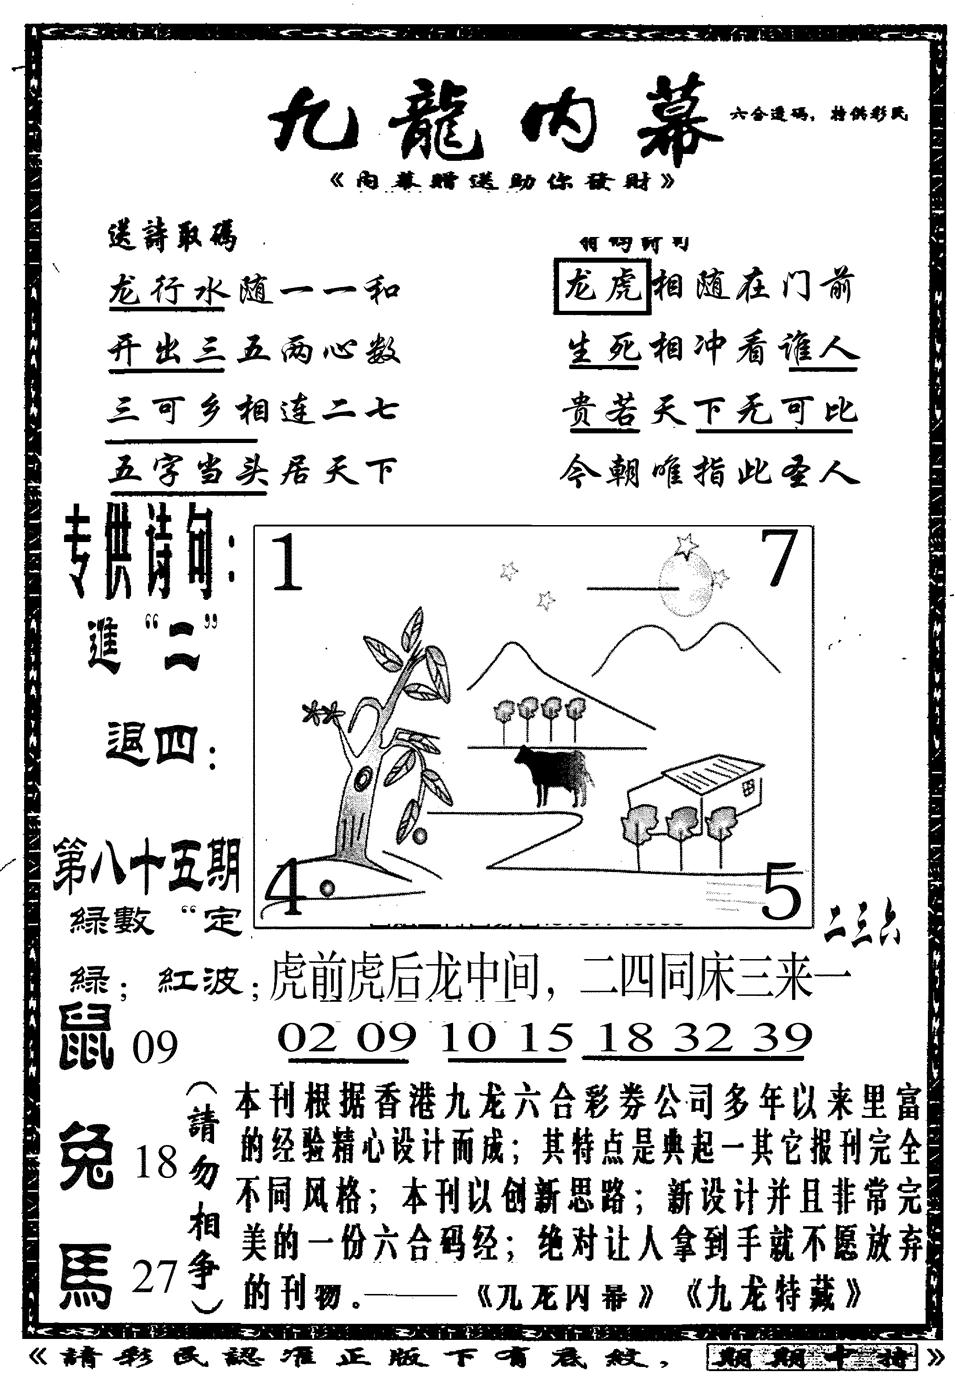 九龍内幕
六合透碼，特供彩民
《内幕贈送助你發財》
送詩取碼
龙行水随一一和
开出三五两心数
三可乡相连二七
五字当头居天下
龙虎相随在门前
生死相冲看谁人
贵若天下无可比
今朝唯指此圣人
专供诗句：
進“二”
退四：
第八十五期
緑數“定
緑；紅波；
1
7
4
5
二三六
虎前虎后龙中间，二四同床三来一
02 09 10 15 18 32 39
鼠 09
兔 18
馬 27
（請勿相争）
本刊根据香港九龙六合彩券公司多年以来里富
的经验精心设计而成；其特点是典起一其它报刊完全
不同风格；本刊以创新思路；新设计并且非常完
美的一份六合码经；绝对让人拿到手就不愿放弃
的刊物。——《九龙内幕》《九龙特藏》
《請彩民認准正版下有底紋，期期十特》